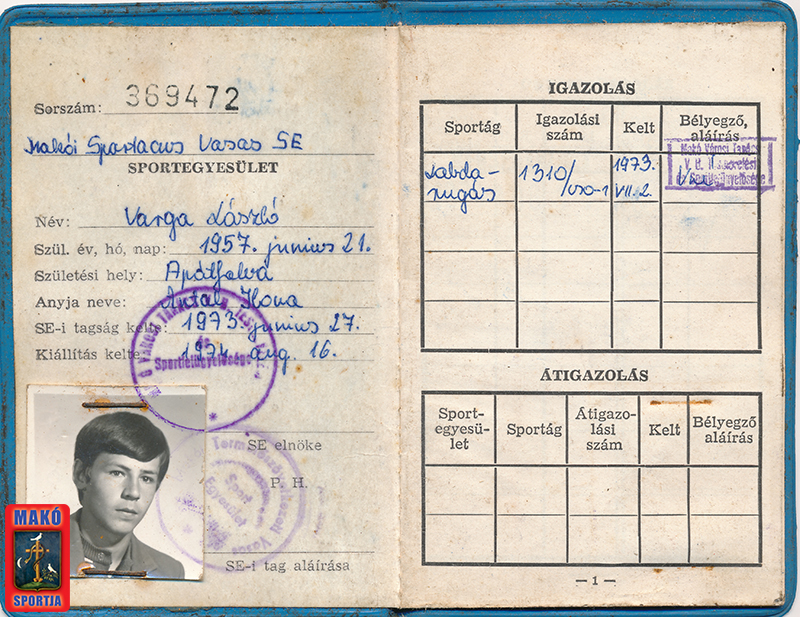 Sorszám: 369472
Makói Spartacus Vasas SE
SPORTEGYESÜLET
Név: Varga László
Szül. év, hó, nap: 1957. junius 21.
Születési hely: Apátfalva
Anyja neve: Antal Ilona
SE-i tagság kelte: 1973. junius 27.
Kiállítás kelte: 1974 aug. 16.
Sportfelügyelősége
SE elnöke
P. H.
Sport
Egyesület
SE-i tag aláírása
MAKÓ
SPORTJA
IGAZOLÁS
Sportág Igazolási szám Kelt Bélyegző, aláírás
Makó Városi Tanács
V. B.
Labda-rugás 1310/ 1973. VII. 2.
ÁTIGAZOLÁS
Sport-egyesü-let Sportág Átigazo-lási szám Kelt Bélyegző aláírás
— 1 —